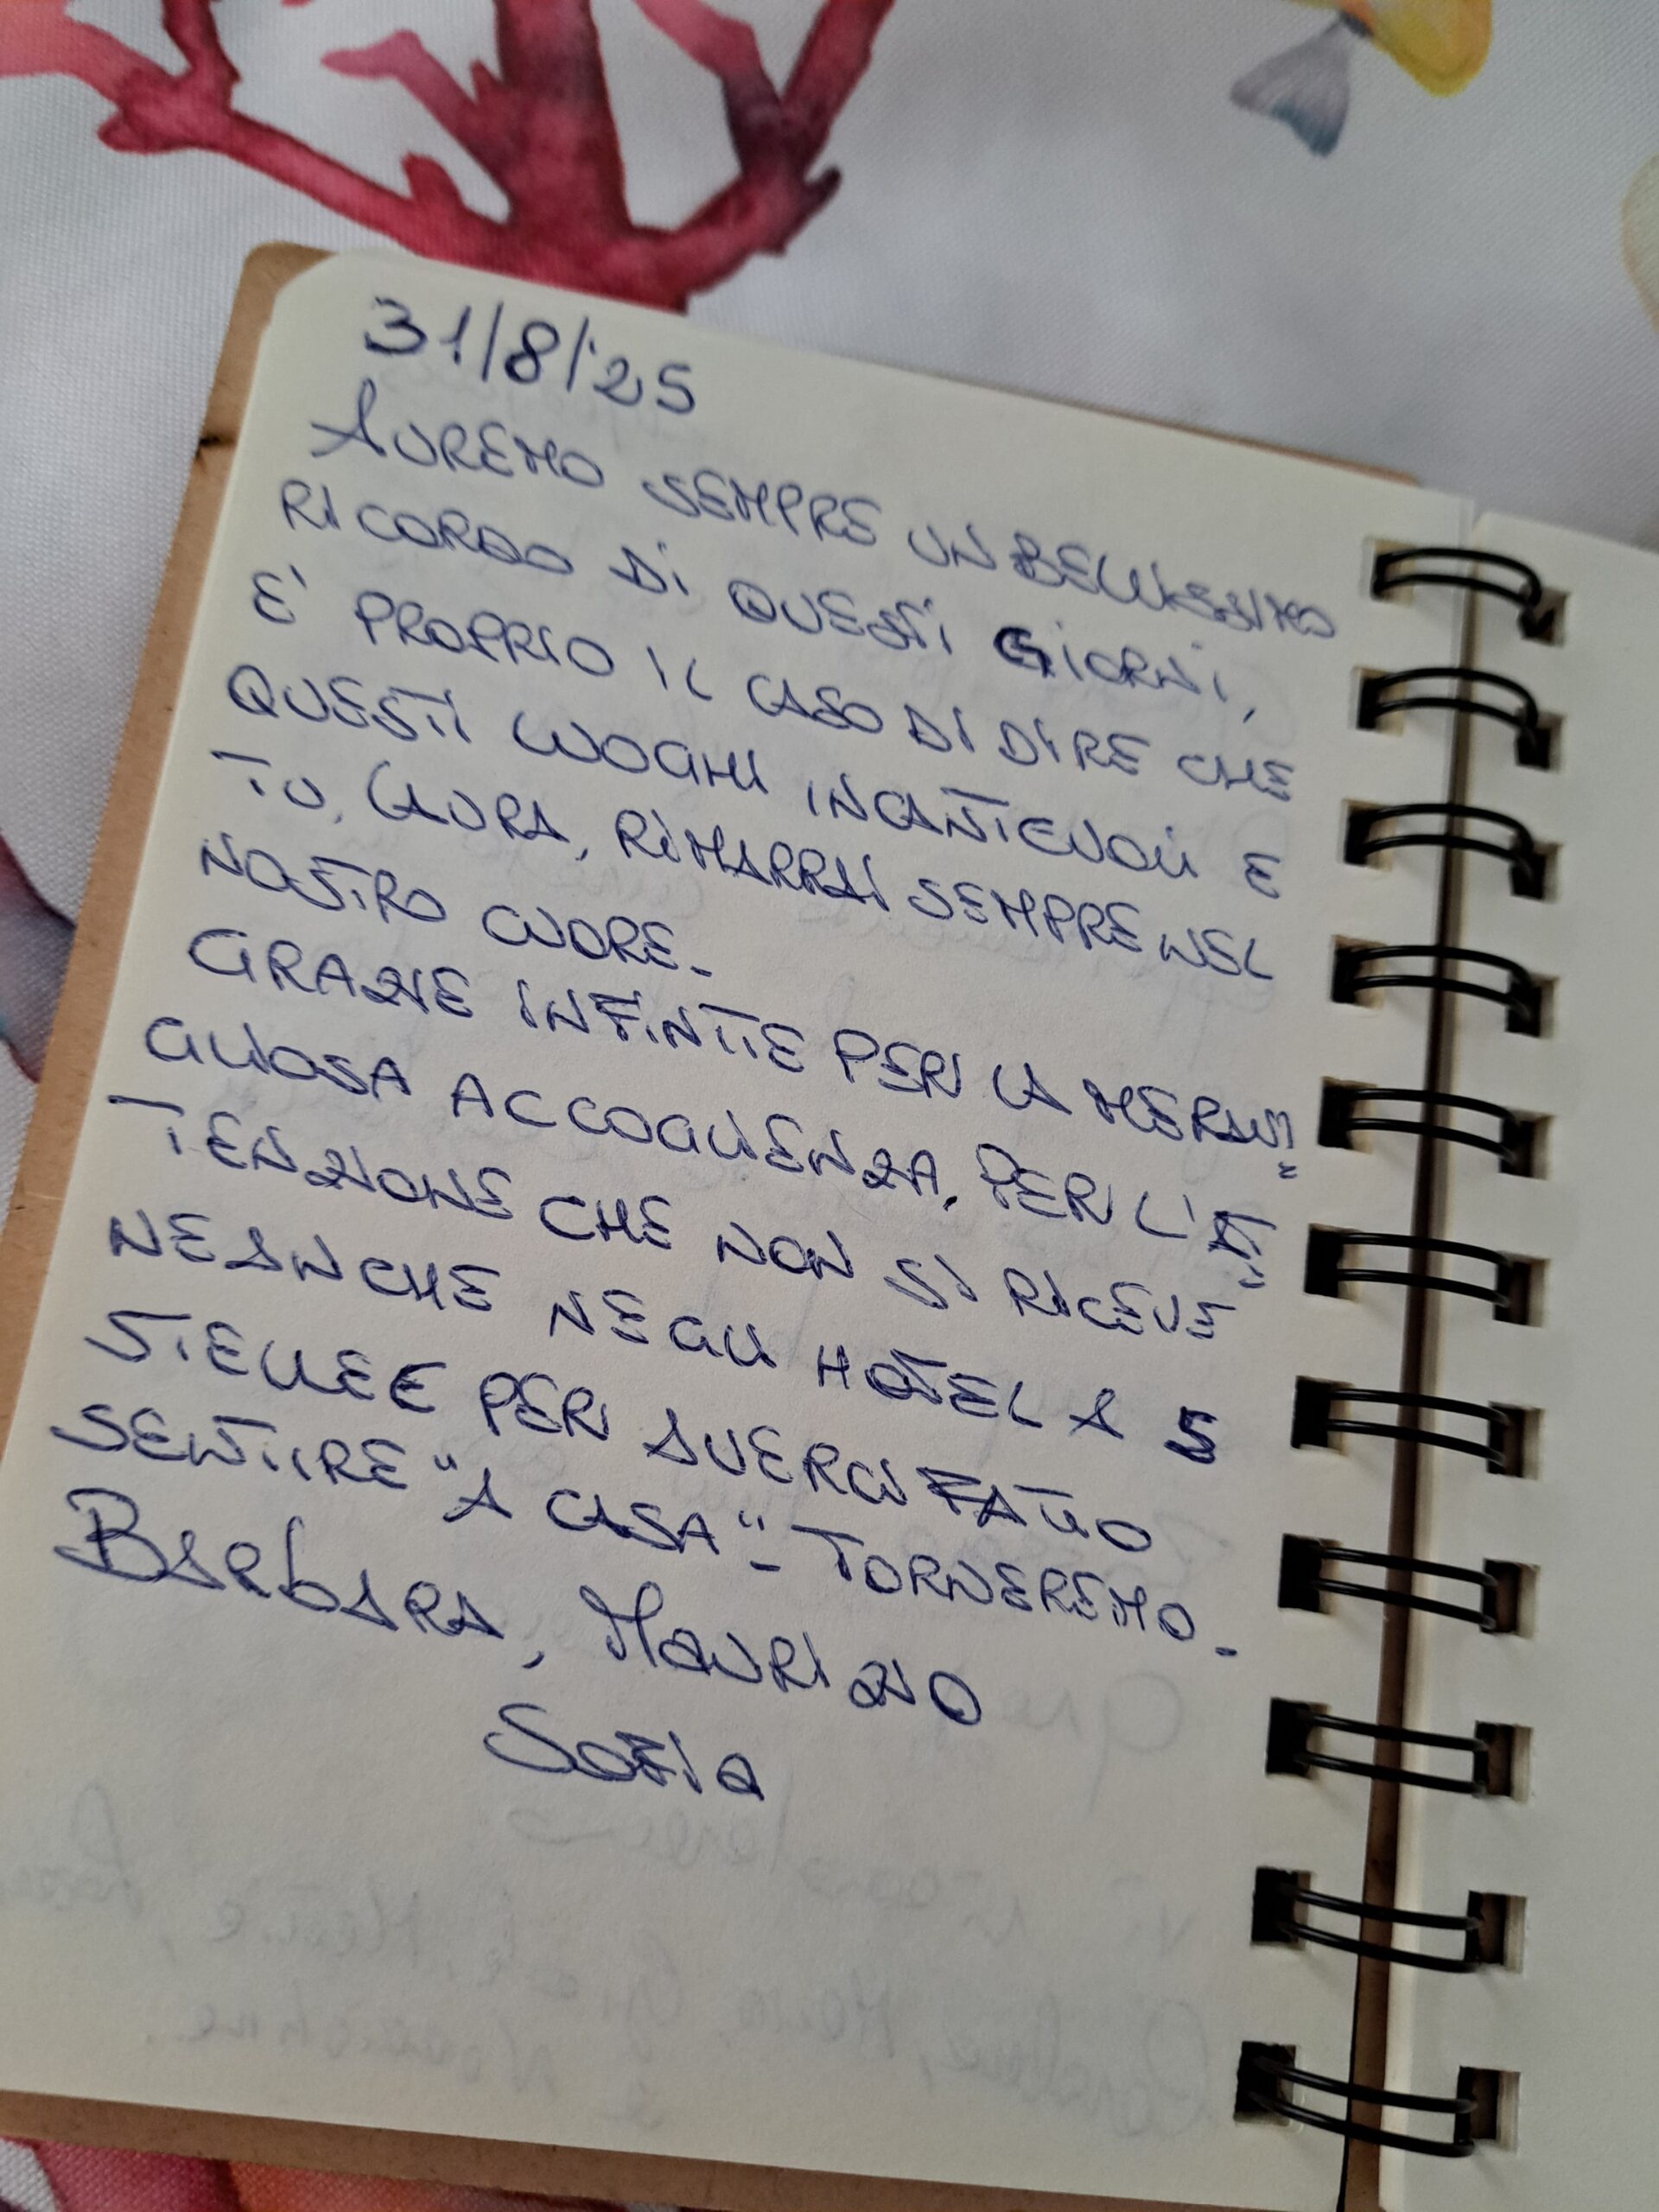 31/8/'25
AVREMO SEMPRE UN BELLISSIMO
RICORDO DI QUESTI GIORNI,
E' PROPRIO IL CASO DI DIRE CHE
QUESTI LUOGHI INCANTEVOLI E
TU, LAURA, RIMARRAI SEMPRE NEL
NOSTRO CUORE.
GRAZIE INFINITE PER LA MERAVI=
GLIOSA ACCOGLIENZA, PER L'AT=
TENZIONE CHE NON SI RICEVE
NEANCHE NEGLI HOTEL A 5
STELLE E PER AVERCI FATTO
SENTIRE "A CASA". TORNEREMO.
BARBARA, MAURIZIO
SOFIA